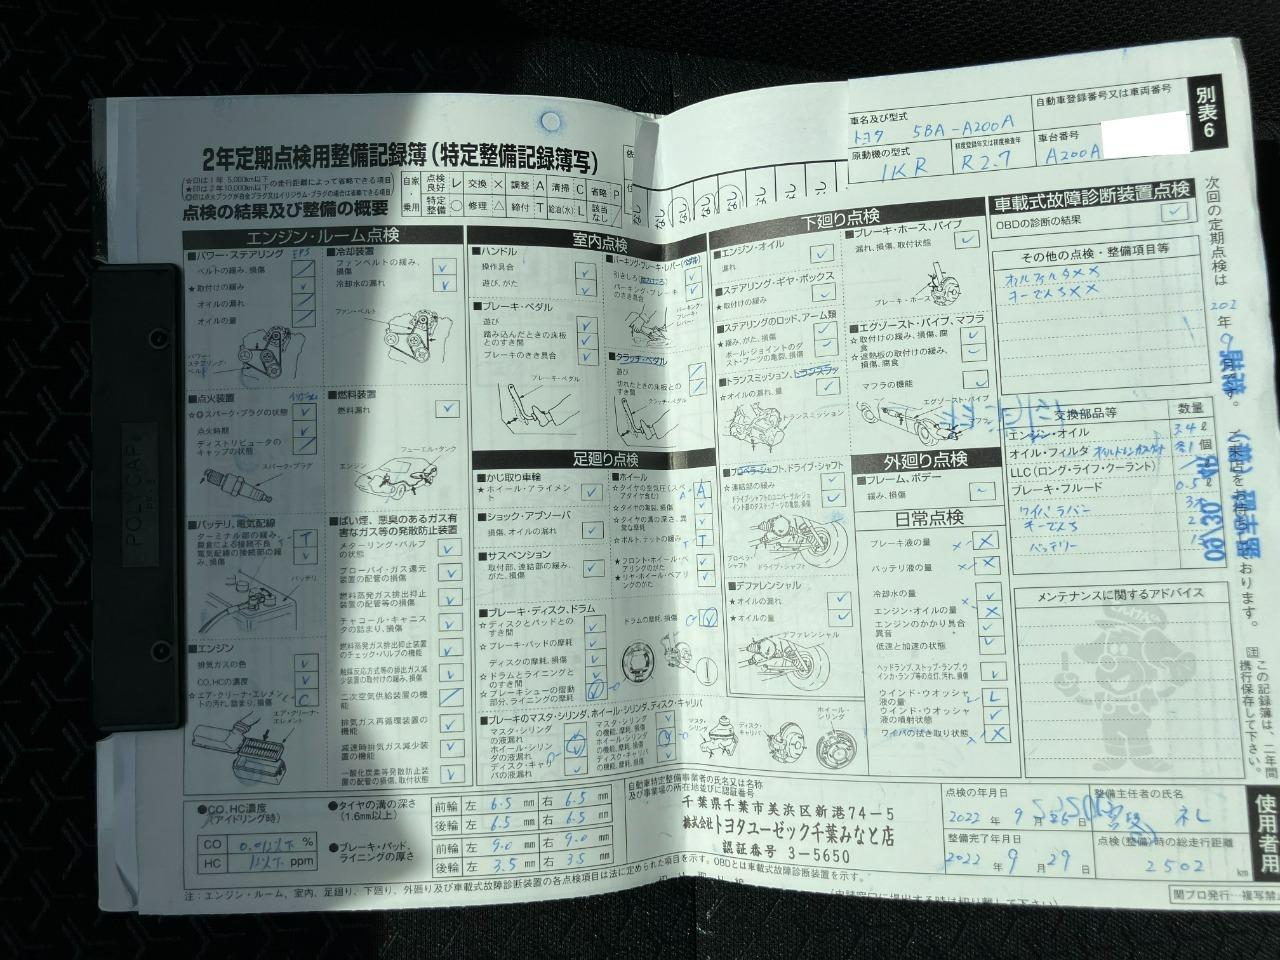 2年定期点検用整備記録簿(特定整備記録簿写)
点検の結果及び整備の概要
自家
乗用
点検良好 レ 交換 × 調整 A 清掃 C 省略 P
特定整備 ○ 修理 △ 締付 T 給油(水) L 該当なし /
車名及び型式
トヨタ 5BA-A200A
自動車登録番号又は車両番号
原動機の型式
1KR
初度登録年又は初度検査年
R2.7
車台番号
A200A
別表6
エンジン・ルーム点検
■パワー・ステアリング EPS
ベルトの緩み、損傷
★取付けの緩み
オイルの漏れ
オイルの量
パワー・ステアリング・ベルト
■点火装置
☆◎スパーク・プラグの状態
点火時期
ディストリビュータのキャップの状態
スパーク・プラグ
■バッテリ、電気配線
ターミナル部の緩み、腐食による接続不良
電気配線の接続部の緩み、損傷
バッテリ
■エンジン
排気ガスの色
CO、HCの濃度
☆エア・クリーナ・エレメントの汚れ、詰まり、損傷
エア・クリーナ・エレメント
■冷却装置
ファンベルトの緩み、損傷
冷却水の漏れ
ファン・ベルト
■燃料装置
燃料漏れ
フューエル・タンク
エンジン
■ばい煙、悪臭のあるガス有害なガス等の発散防止装置
メターリング・バルブの状態
ブローバイ・ガス還元装置の配管の損傷
燃料蒸発ガス排出抑止装置の配管等の損傷
チャコール・キャニスタの詰まり、損傷
燃料蒸発ガス排出抑止装置のチェック・バルブの機能
触媒反応方式等の排出ガス減少装置の取付けの緩み、損傷
二次空気供給装置の機能
排気ガス再循環装置の機能
減速時排気ガス減少装置の機能
一酸化炭素等発散防止装置の配管の損傷、取付状態
室内点検
■ハンドル
操作具合
遊び、がた
■ブレーキ・ペダル
遊び
踏み込んだときの床板とのすき間
ブレーキのきき具合
ブレーキ・ペダル
■パーキング・ブレーキ・レバー(ペダル)
引きしろ(踏みしろ)
パーキング・ブレーキのきき具合
パーキング・ブレーキ・レバー
■クラッチ・ペダル
遊び
切れたときの床板とのすき間
クラッチ・ペダル
足廻り点検
■かじ取り車輪
★ホイール・アライメント
■ショック・アブソーバ
損傷、オイルの漏れ
■サスペンション
取付部、連結部の緩み、がた、損傷
■ブレーキ・ディスク、ドラム
☆ディスクとパッドとのすき間
☆ブレーキ・パッドの摩耗
ディスクの摩耗、損傷
☆ドラムとライニングとのすき間
☆ブレーキシューの摺動部分、ライニングの摩耗
ドラムの摩耗、損傷
■ホイール
☆タイヤの空気圧(スペアタイヤ含む)
☆タイヤの亀裂、損傷
☆タイヤの溝の深さ、異常な摩耗
★ボルト、ナットの緩み
★フロント・ホイール・ベアリングのがた
★リヤ・ホイール・ベアリングのがた
■ブレーキのマスタ・シリンダ、ホイール・シリンダ、ディスク・キャリパ
マスタ・シリンダの液漏れ
ホイール・シリンダの液漏れ
ディスク・キャリパの液漏れ
マスタ・シリンダの機能、摩耗、損傷
ホイール・シリンダの機能、摩耗、損傷
ディスク・キャリパの機能、摩耗、損傷
マスタ・シリンダ
ディスク・キャリパ
ホイール・シリンダ
下廻り点検
■エンジン・オイル
漏れ
■ステアリング・ギヤ・ボックス
★取付けの緩み
■ステアリングのロッド、アーム類
★緩み、がた、損傷
ボール・ジョイントのダスト・ブーツの亀裂、損傷
■トランスミッション、トランスファ
☆オイルの漏れ、量
トランスミッション
■プロペラ・シャフト、ドライブ・シャフト
☆連結部の緩み
ドライブ・シャフトのユニバーサル・ジョイント部のダスト・ブーツの亀裂、損傷
プロペラ・シャフト
ドライブ・シャフト
■デファレンシャル
★オイルの漏れ
★オイルの量
デファレンシャル
■ブレーキ・ホース、パイプ
漏れ、損傷、取付状態
ブレーキ・ホース
■エグゾースト・パイプ、マフラ
☆取付けの緩み、損傷、腐食
☆遮熱板の取付けの緩み、損傷、腐食
マフラの機能
エグゾースト・パイプ
外廻り点検
■フレーム、ボデー
緩み、損傷
日常点検
ブレーキ液の量 ×
バッテリ液の量 ×
冷却水の量
エンジン・オイルの量 ×
エンジンのかかり具合
異音
低速と加速の状態
ヘッドランプ、ストップ・ランプ、ウインカ・ランプ等の点灯、汚れ、損傷
ウインド・ウオッシャ液の量 L
ウインド・ウオッシャ液の噴射状態
ワイパの拭き取り状態 ×
車載式故障診断装置点検
OBDの診断の結果
その他の点検・整備項目等
交換部品等 数量
エンジン・オイル 3.4 ℓ
オイル・フィルタ 個
LLC(ロング・ライフ・クーラント)
ブレーキ・フルード 0.5
ワイパラバー
キーでんち 2
バッテリー
メンテナンスに関するアドバイス
次回の定期点検は
年
ご来店をお待ちしております。
注 この記録簿は、二年間携行保存して下さい。
使用者用
●CO、HC濃度(アイドリング時)
CO %
HC ppm
●タイヤの溝の深さ(1.6mm以上)
前輪 左 6.5 mm 右 6.5 mm
後輪 左 6.5 mm 右 6.5 mm
●ブレーキ・パッド、ライニングの厚さ
前輪 左 9.0 mm 右 9.0 mm
後輪 左 3.5 mm 右 3.5 mm
自動車特定整備事業者の氏名又は名称及び事業場の所在地並びに認証番号
千葉県千葉市美浜区新港74-5
株式会社トヨタユーゼック千葉みなと店
認証番号 3-5650
点検の年月日
2022 年 9 月 26 日
整備主任者の氏名
整備完了年月日
2022 年 9 月 29 日
点検(整備)時の総走行距離
2502 km
注:エンジン・ルーム、室内、足廻り、下廻り、外廻り及び車載式故障診断装置の各点検項目は法に定められた項目を示す。OBDとは車載式故障診断装置を示す。
関プロ発行…複写禁
POLYCAP